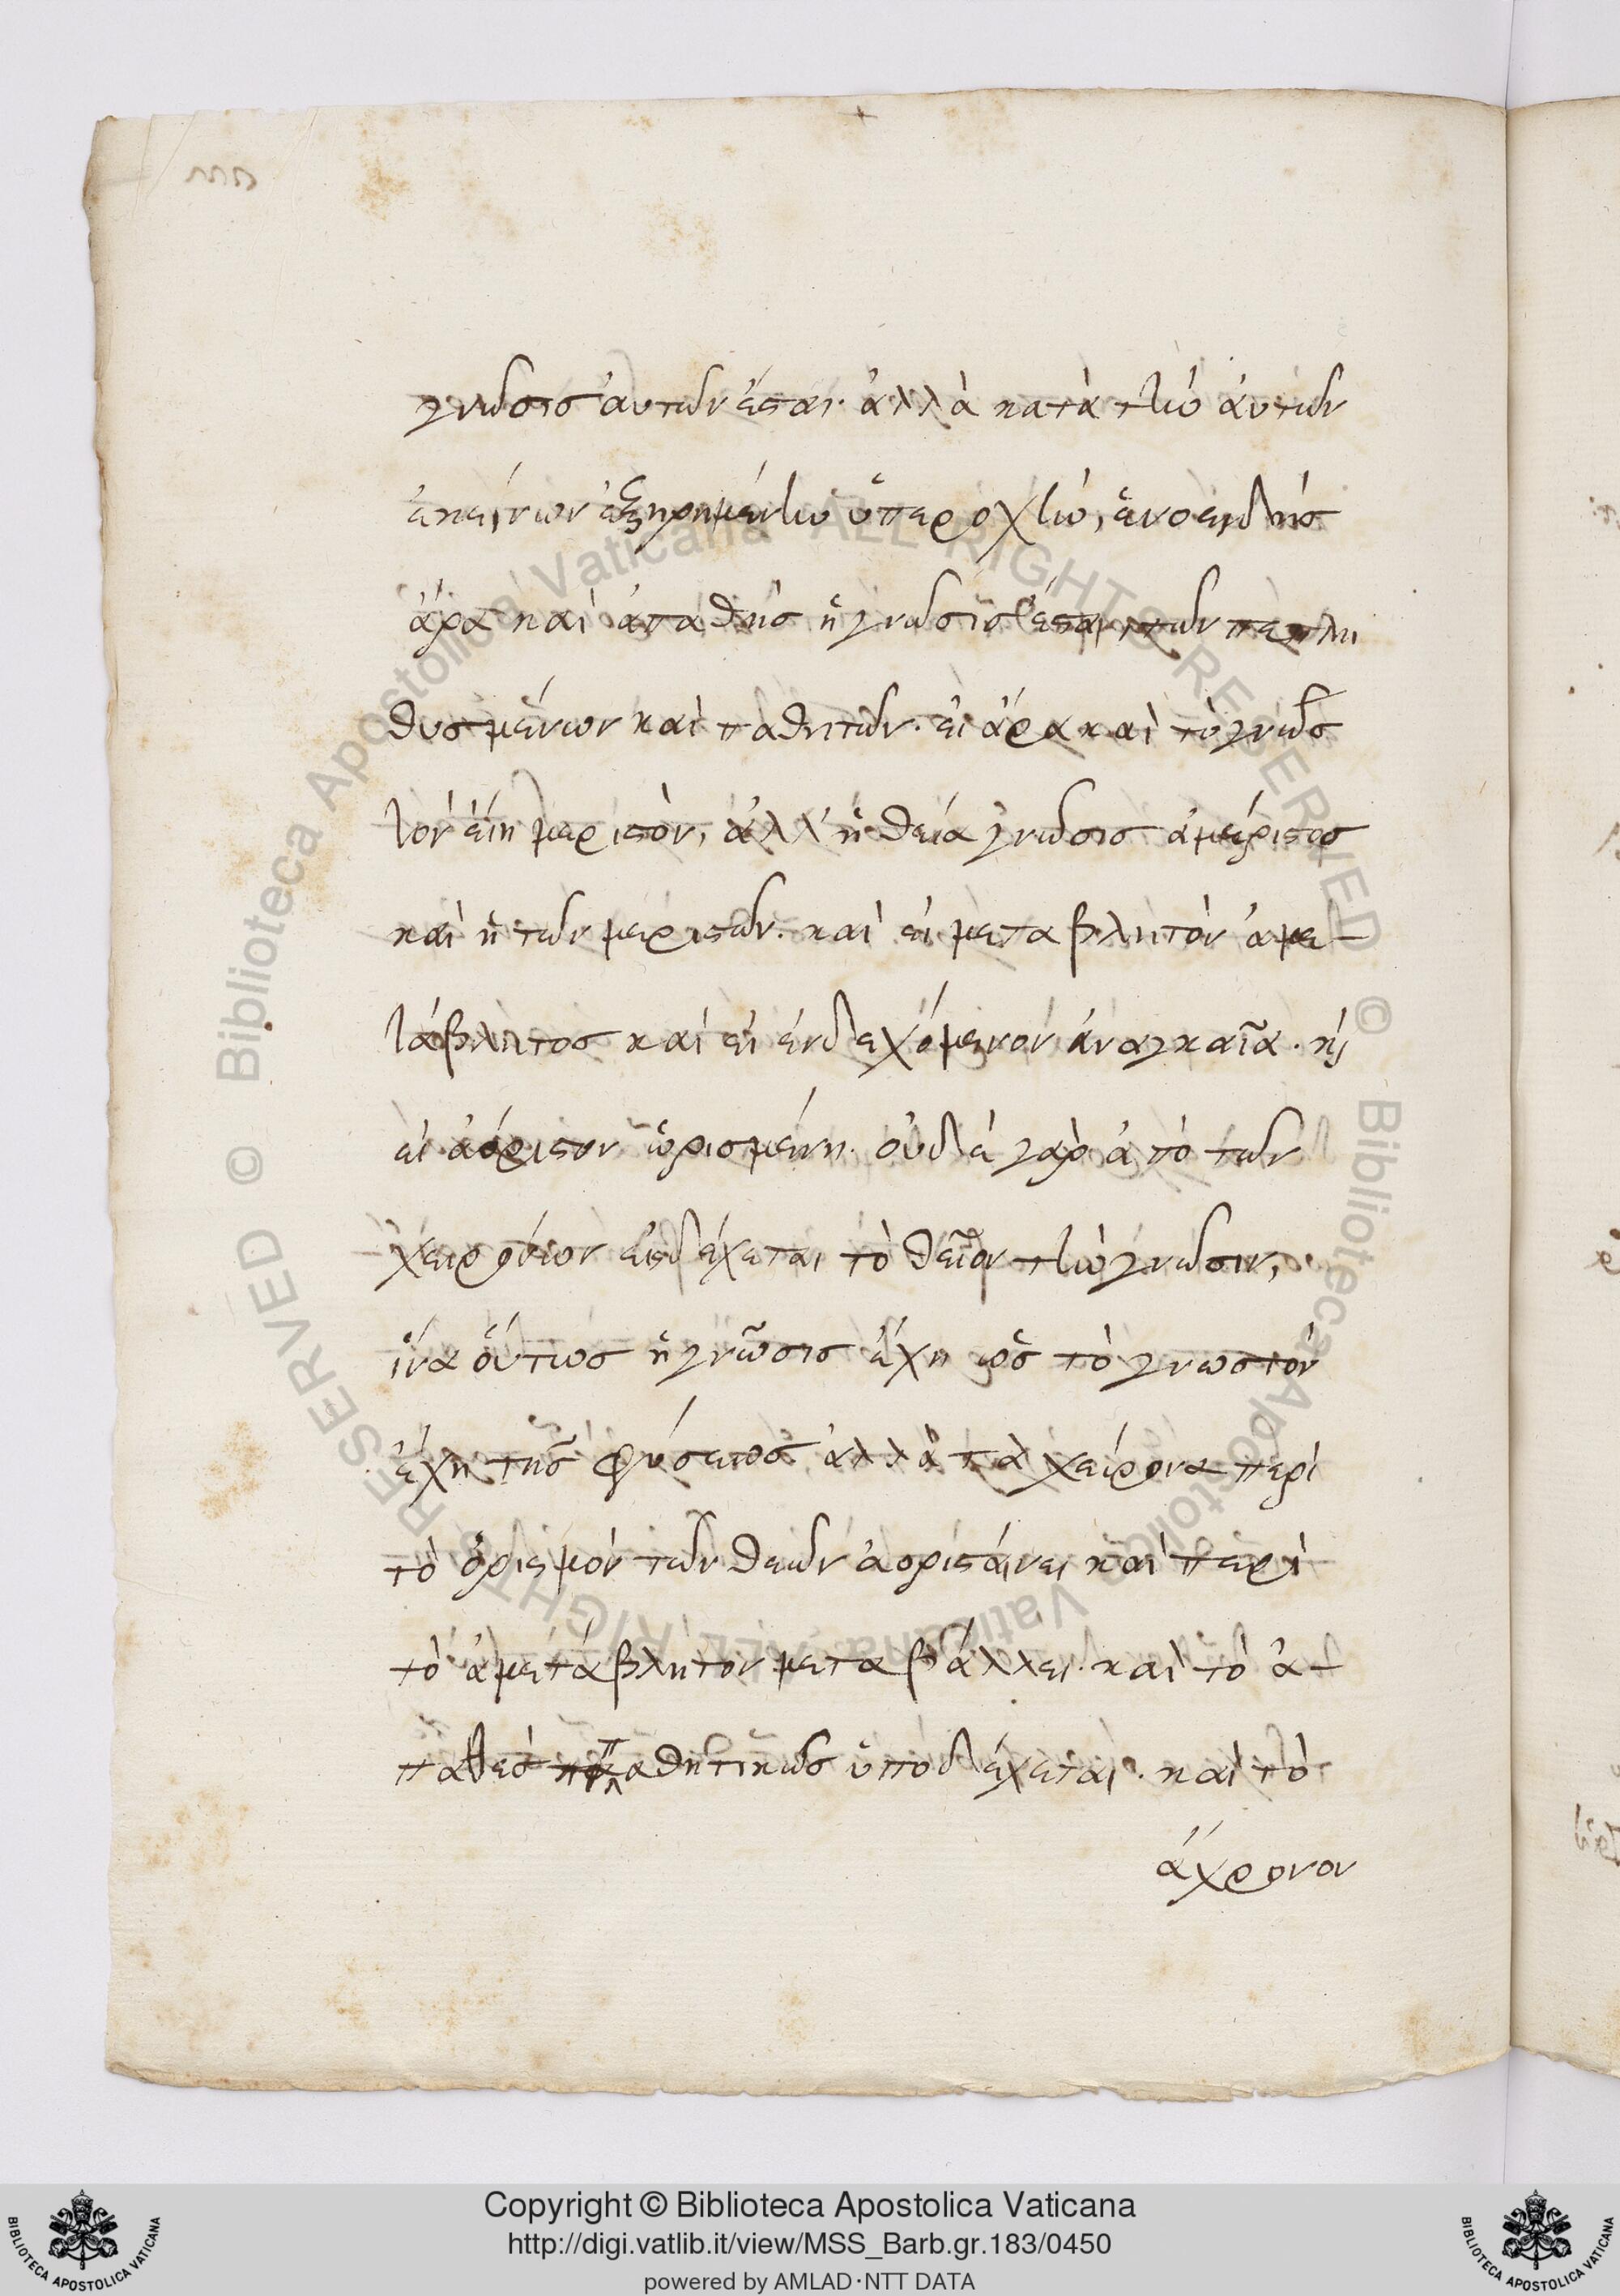 γνῶσις ἀυτῶν ἔσται· ἀλλὰ κατὰ τὴν ἀυτῶν
ἐκείνων ἐξῃρημένην ὑπεροχὴν, ἑνοειδὴς
ἄρα καὶ ἀπαθὴς ἡ γνῶσις ἔσται τῶν πεπλη
θυσμένων καὶ παθητῶν· εἰ ἄρα καὶ τὸ γνωσ
τὸν εἴη μεριστὸν, ἀλλ' ἡ θεία γνῶσις ἀμέριστος
καὶ ἡ τῶν μεριστῶν· καὶ εἰ μεταβλητὸν ἀμε-
τάβλητος καὶ εἰ ἐνδεχόμενον ἀναγκαῖα· κὶ
εἰ ἀόριστον ὡρισμένη· οὐδὲ γὰρ ἀπὸ τῶν
χειρόνων εἰσδέχεται τὸ θεῖον τὴν γνῶσιν,
ἵνα οὕτως ἡ γνῶσις ἔχη ὡς τὸ γνωστὸν
ἔχη τῆς φύσεως ἀλλὰ τὰ χείρονα περὶ
τὸ ὁρισμὸν τῶν θεῶν ἀοριστάινει καὶ περὶ
τὸ ἀμετάβλητον μεταβάλλει· καὶ τὸ ἀ-
παθὲς παθητικῶς ὑποδέχεται· καὶ τὸ
ἄχρονον
Copyright © Biblioteca Apostolica Vaticana
http://digi.vatlib.it/view/MSS_Barb.gr.183/0450
powered by AMLAD·NTT DATA
BIBLIOTECA APOSTOLICA VATICANA
BIBLIOTECA APOSTOLICA VATICANA
© Biblioteca Apostolica Vaticana ALL RIGHTS RESERVED
© Biblioteca Apostolica Vaticana ALL RIGHTS RESERVED